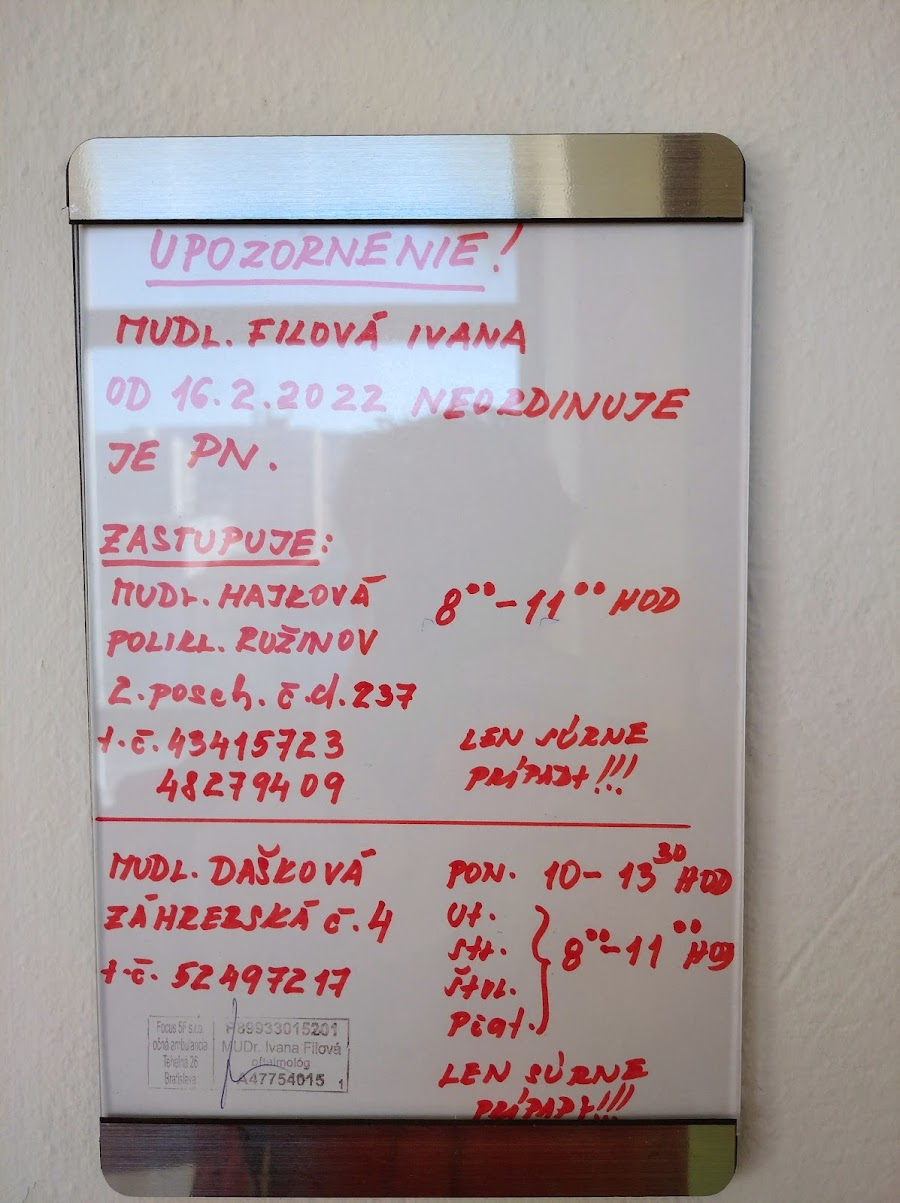 UPOZORNENIE!
MUDR. FILOVÁ IVANA
OD 16.2.2022 NEORDINUJE
JE PN.
ZASTUPUJE:
MUDR. HAJKOVÁ 8⁰⁰-11⁰⁰ HOD
POLIKL. RUŽINOV
2.posch. č.d.237
t.č. 43415723 LEN SÚRNE
48279409 PRÍPADY!!!
MUDR. DAŠKOVÁ PON. 10-13³⁰ HOD
ZÁHREBSKÁ č.4 Ut.
Str. 8⁰⁰-11⁰⁰ HOD
t.č. 52497217 Štvr.
Piat.
LEN SÚRNE
PRÍPADY!!!
Focus 5F s.r.o.
očná ambulancia
Tehelná 26
Bratislava
89933015201
MUDr. Ivana Filová
oftalmológ
A47754015 1